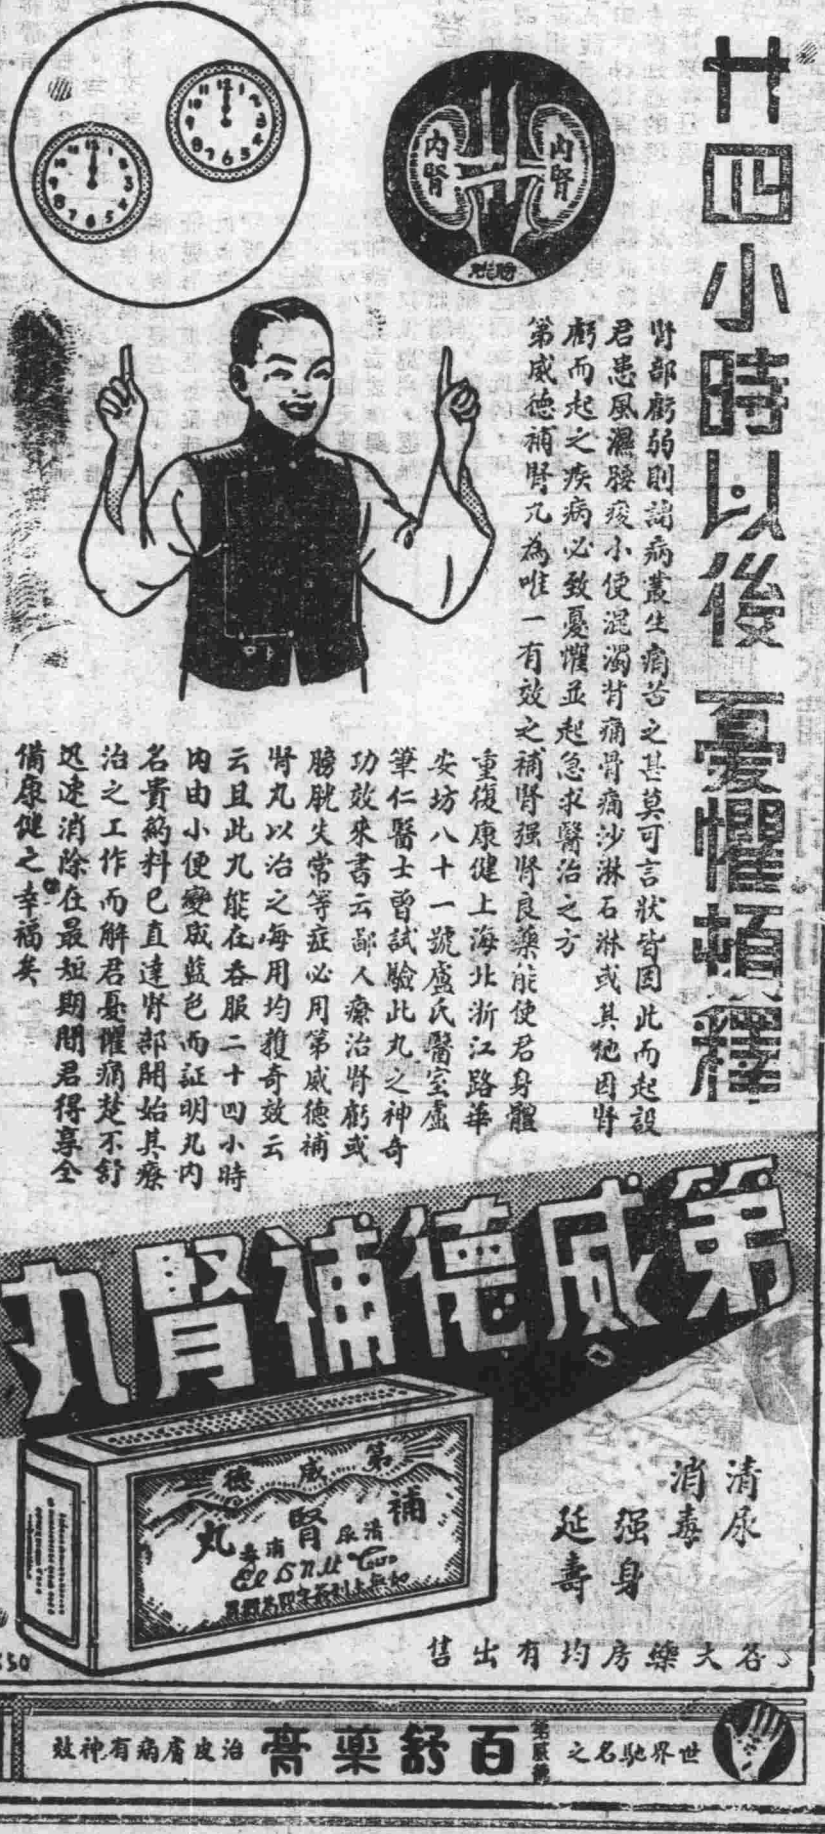 廿四小時以後 憂懼頓釋
內腎
內腎
膀胱
腎部虧弱則諸病叢生痛苦之甚莫可言狀皆因此而起設
君患風濕腰痠小便混濁背痛骨痛沙淋石淋或其他因腎
虧而起之疾病必致憂懼並起急求醫治之方
第威德補腎丸為唯一有效之補腎强腎良藥能使君身體
重復康健上海北浙江路華
安坊八十一號盧氏醫室盧
筆仁醫士曾試驗此丸之神奇
功效來書云鄙人療治腎虧或
膀胱失常等症必用第威德補
腎丸以治之每用均獲奇效云
云且此丸能在吞服二十四小時
內由小便變成藍色而証明丸內
名貴藥料已直達腎部開始其療
治之工作而解君憂懼痛楚不舒
迅速消除在最短期間君得享全
備康健之幸福矣
第威德補腎丸
第威德
補腎丸
清尿消毒
清尿
消毒
强身
延壽
各大藥房均有出售
世界馳名之
第威德
百舒藥膏
治皮膚病有神效